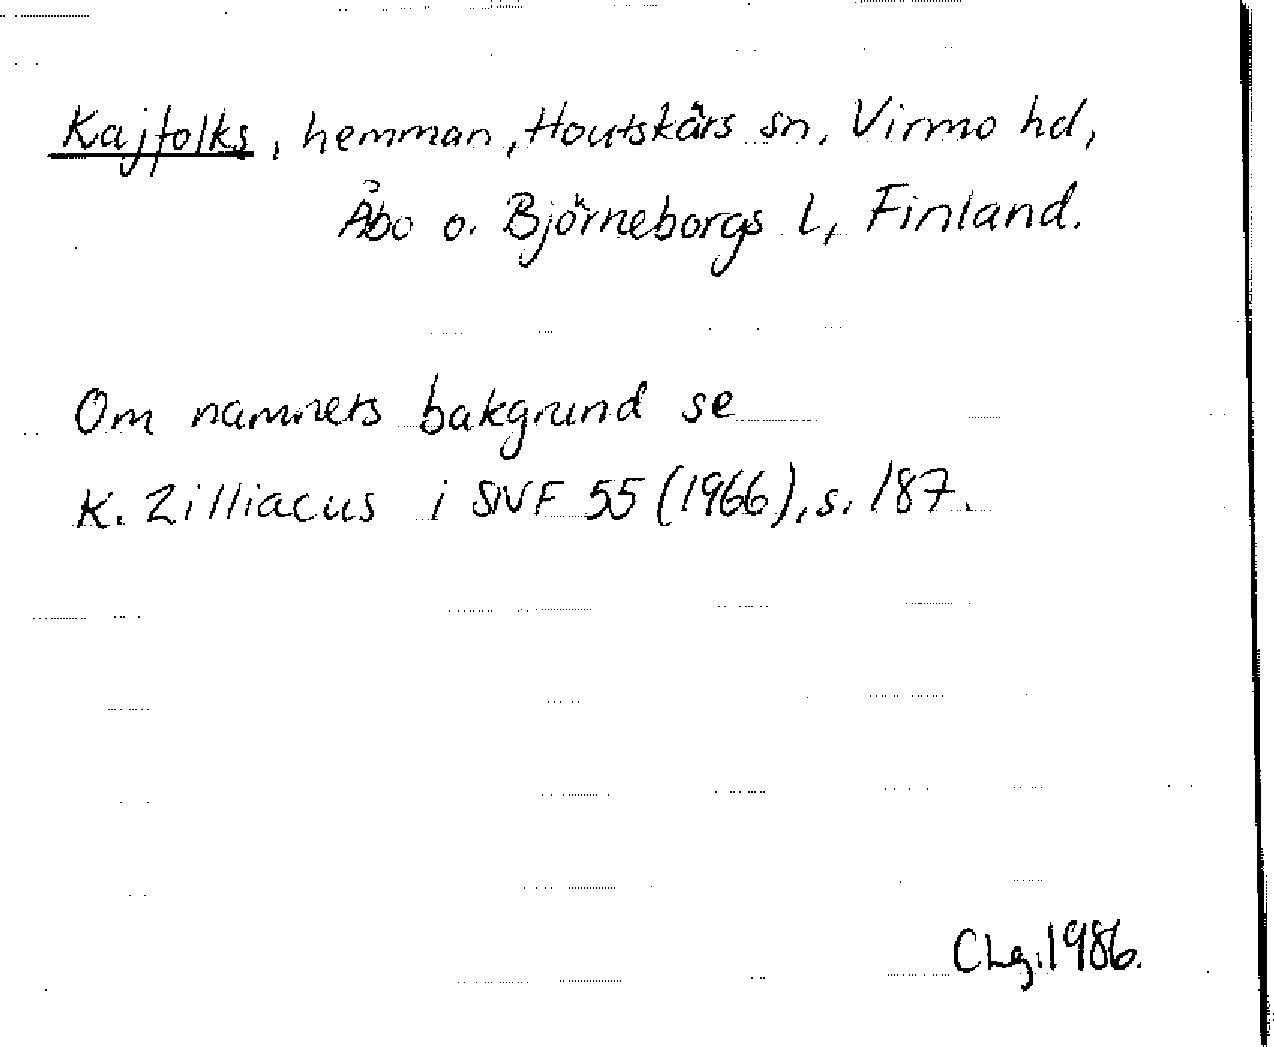 Kajfolks, hemman, Houtskärs sn, Virmo hd,
Åbo o. Björneborgs l, Finland.
Om namnets bakgrund se
K. Zilliacus i SNF 55 (1966), s. 187.
CLg. 1986.